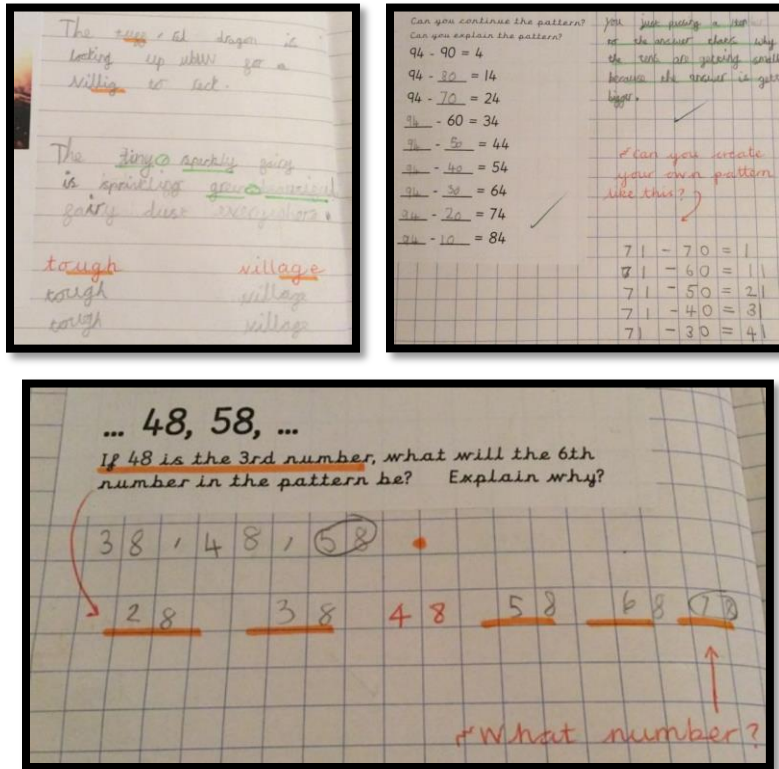 The tugg, red dragon is
looking up when for a
villig to
The tiny sparkly fairy
is sprinkling green beautiful
fairy dust everywhere.
tough village
tough village
tough village
Can you continue the pattern?
Can you explain the pattern?
94 - 90 = 4
94 - 80 = 14
94 - 70 = 24
94 - 60 = 34
94 - 50 = 44
94 - 40 = 54
94 - 30 = 64
94 - 20 = 74
94 - 10 = 84
you just puting a
to the answer thats why
the tens are getting small
because the answer is gett
bigger.
Can you create
your own pattern
like this?
71 - 70 = 1
71 - 60 = 11
71 - 50 = 21
71 - 40 = 31
71 - 30 = 41
... 48, 58, ...
If 48 is the 3rd number, what will the 6th
number in the pattern be? Explain why?
38, 48, 58
28 38 48 58 68 78
What number?